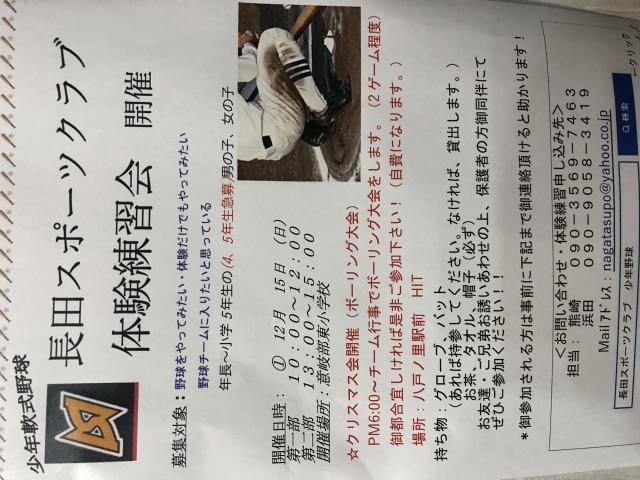 少年軟式野球
長田スポーツクラブ
体験練習会 開催
募集対象：野球をやってみたい・体験だけでもやってみたい
野球チームに入りたいと思っている
年長～小学5年生の(4、5年生急募)男の子、女の子
開催日時： ① 12月 15日 （日）
第一部 10：00～12：00
第二部 13：00～15：00
開催場所：意岐部東小学校
☆クリスマス会開催（ボーリング大会）
PM6:00～チーム行事でボーリング大会をします。（2ゲーム程度）
御都合宜しければ是非ご参加下さい！（自費になります。）
場所：八戸ノ里駅前 HIT
持ち物：グローブ、バット
（あれば持参してください。なければ、貸出します。）
お茶、タオル、帽子（必ず）
お友達・ご兄弟お誘いあわせの上、保護者の方御同伴にて
ぜひご参加ください！！
＊御参加される方は事前に下記まで御連絡頂けると助かります！
＜お問い合わせ・体験練習申し込み先＞
担当： 熊崎 090-3569-7463
浜田 090-9558-3419
Mailアドレス：nagatasupo@yahoo.co.jp
長田スポーツクラブ 少年野球
検索